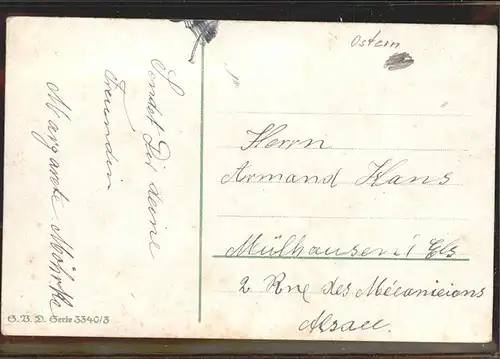 Ostern
Sendet Dir deine
Freundin
Margarete Möhrke
Herrn
Armand Hans
Mülhausen i Els
2 Rue des Mécaniciens
Alsace.
G. B. D. Serie 3340/3